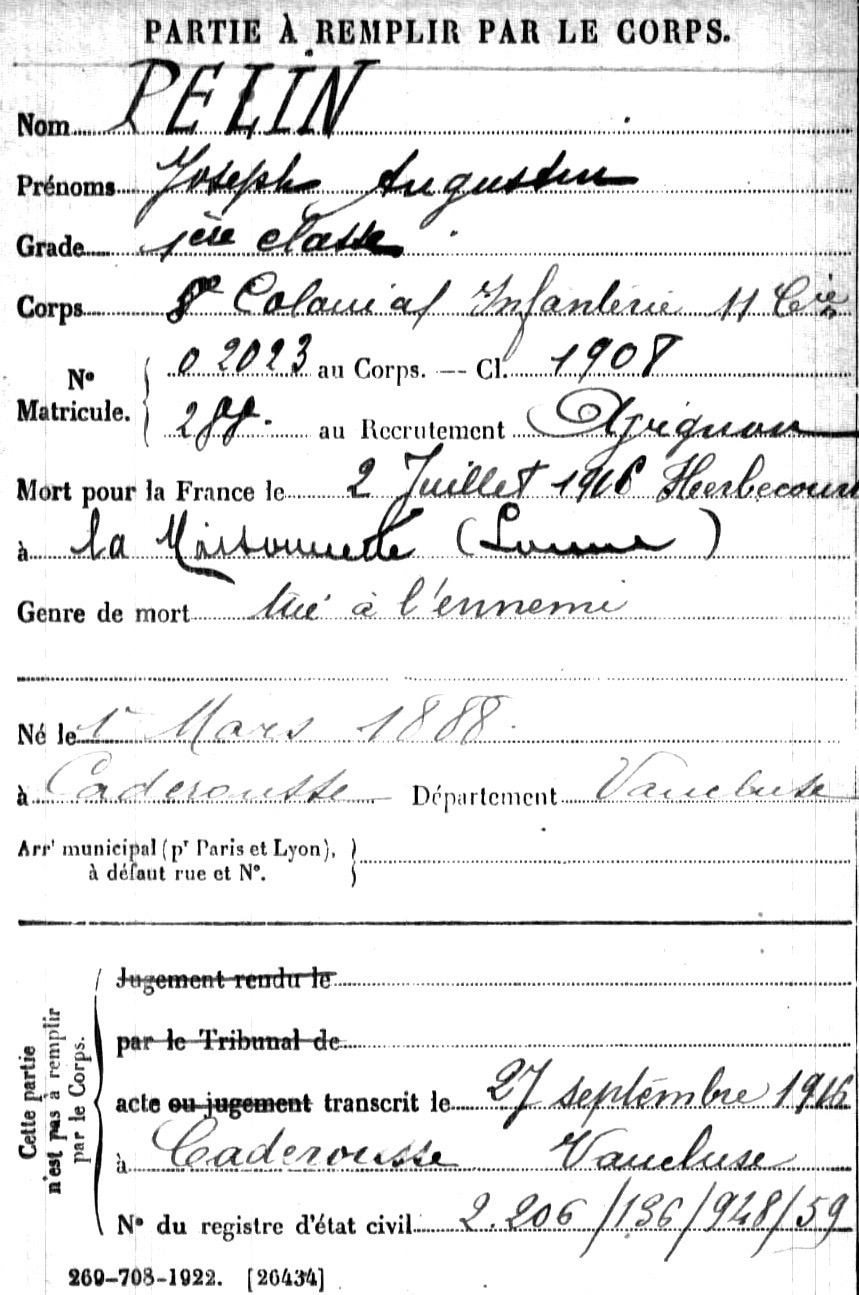 PARTIE À REMPLIR PAR LE CORPS.
Nom PELIN
Prénoms Joseph Augustin
Grade 1ère classe
Corps 8e Colonial Infanterie 11 Cie
No Matricule. 02023 au Corps. — Cl. 1908
288. au Recrutement Avignon
Mort pour la France le 2 Juillet 1916 Herbecourt
à la Maisonnette (Somme)
Genre de mort tué à l'ennemi
Né le 1r Mars 1888.
à Caderousse Département Vaucluse
Arrt municipal (pr Paris et Lyon),
à défaut rue et No.
Cette partie n'est pas à remplir par le Corps.
Jugement rendu le
par le Tribunal de
acte ou jugement transcrit le 27 septembre 1916
à Caderousse Vaucluse
No du registre d'état civil 2.206/136/948/59
269-708-1922. [26434]